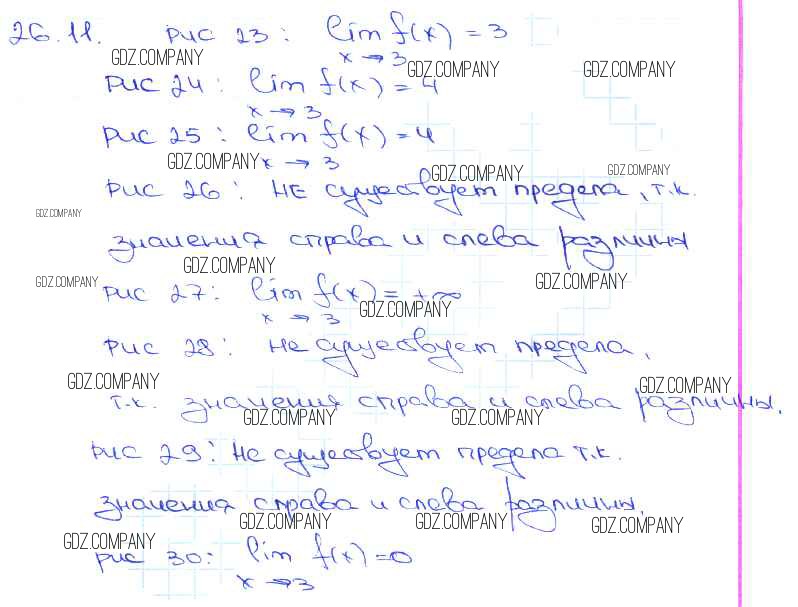 26.11. рис 23: lim f(x) = 3
x → 3
GDZ.COMPANY
GDZ.COMPANY GDZ.COMPANY
рис 24: lim f(x) = 4
x → 3
рис 25: lim f(x) = 4
GDZ.COMPANY x → 3
GDZ.COMPANY GDZ.COMPANY
рис 26: не существует предела, т.к.
GDZ.COMPANY
значения справа и слева различны
GDZ.COMPANY
GDZ.COMPANY GDZ.COMPANY
рис 27: lim f(x) = +∞
x → 3 GDZ.COMPANY
рис 28: не существует предела,
GDZ.COMPANY GDZ.COMPANY
т.к. значения справа и слева различны.
GDZ.COMPANY GDZ.COMPANY
рис 29: не существует предела т.к.
значения справа и слева различны.
GDZ.COMPANY GDZ.COMPANY GDZ.COMPANY
GDZ.COMPANY
рис 30: lim f(x) = 0
x → 3